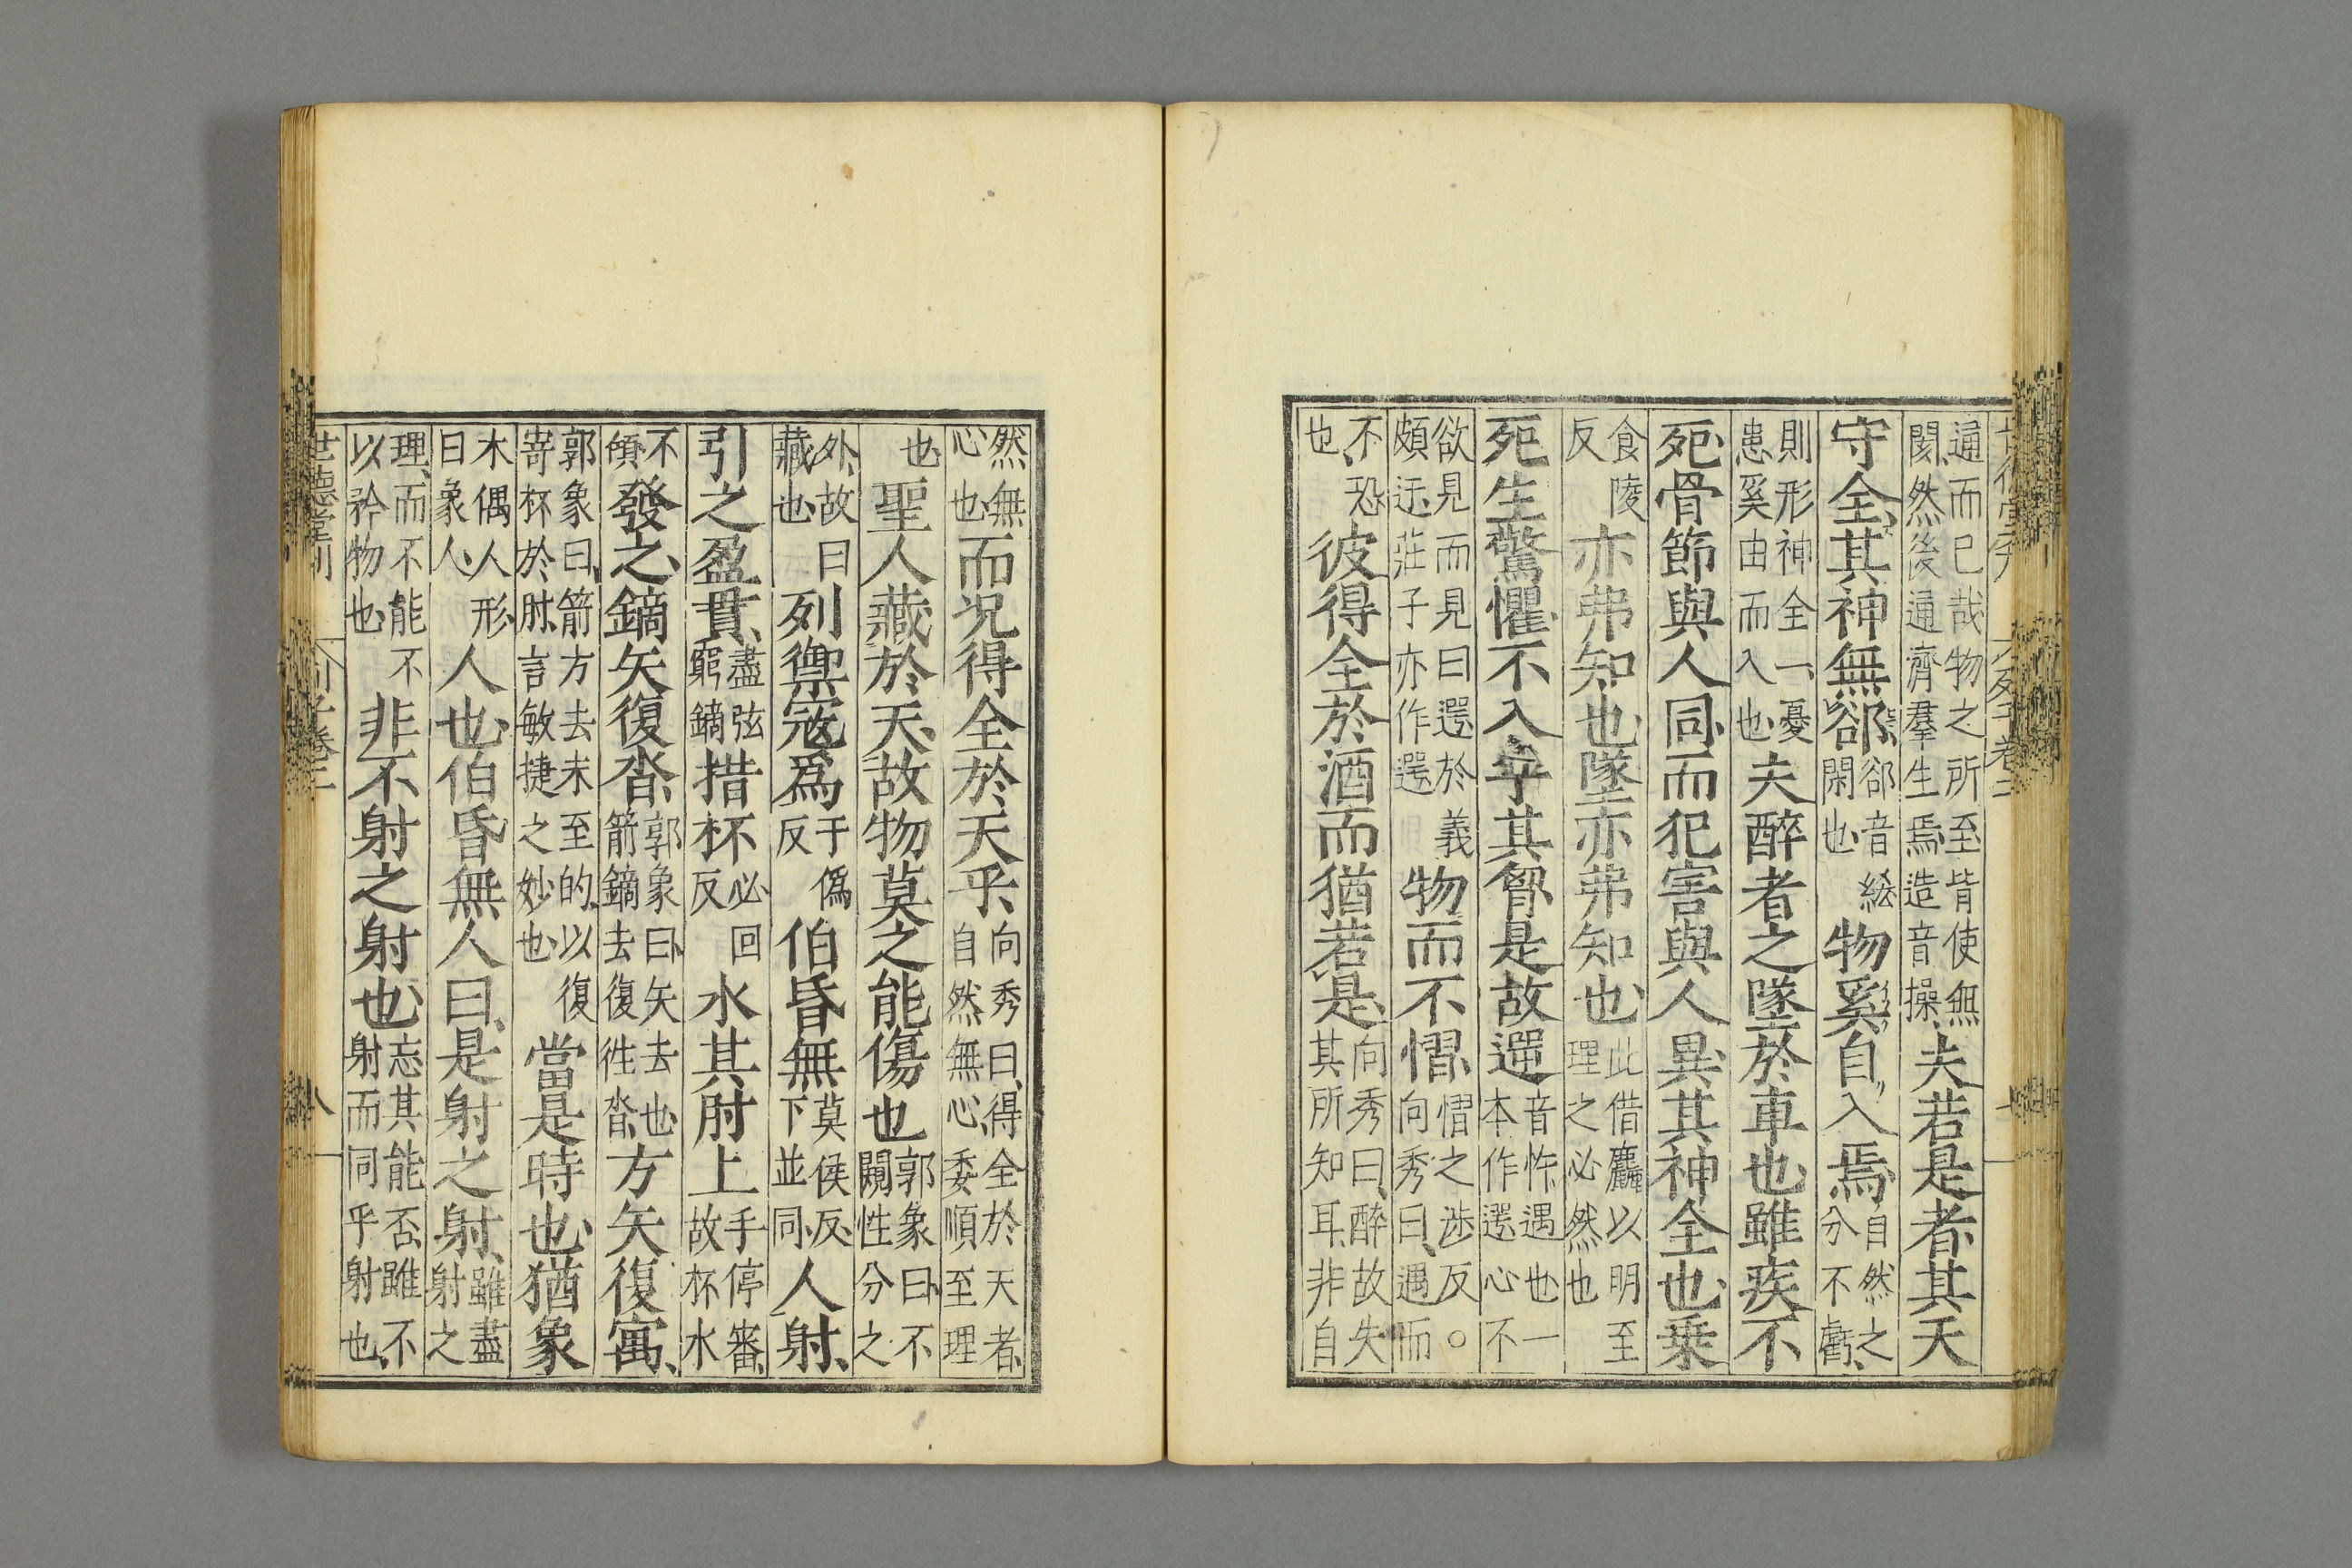 通而已哉物之所至皆使無閡然後通濟羣生焉造音操夫若是者其天
守全其神無郤郤音綌閑也物奚自入焉自然之分不虧
則形神全一憂患奚由而入也夫醉者之墜於車也雖疾不
死骨節與人同而犯害與人異其神全也乗
食陵反亦弗知也墜亦弗知也此借麤以明至理之必然也
死生驚懼不入乎其胷是故遻音忤遇也一本作遌心不
欲見而見曰遌於義頗迃莊子亦作遌物而不慴慴之涉反○向秀曰遇而
不恐也彼得全於酒而猶若是向秀曰醉故失其所知耳非自
然無心也而况得全於天乎向秀曰得全於天者自然無心委順至理
也聖人藏於天故物莫之能傷也郭象曰不闚性分之
外故曰藏也列禦寇爲于僞反伯昏無莫侯反下並同人射
引之盈貫盡弦窮鏑措杯必回反水其肘上手停審故杯水
不傾發之鏑矢復沓郭象曰矢去也箭鏑去復徃沓方矢復寓
郭象曰箭方去未至的以復寄杯於肘言敏捷之妙也當是時也猶象
木偶人形曰象人人也伯昏無人曰是射之射雖盡射之
理而不能不以矜物也非不射之射也忘其能否雖不射而同乎射也
世德堂刊
列子卷二
八